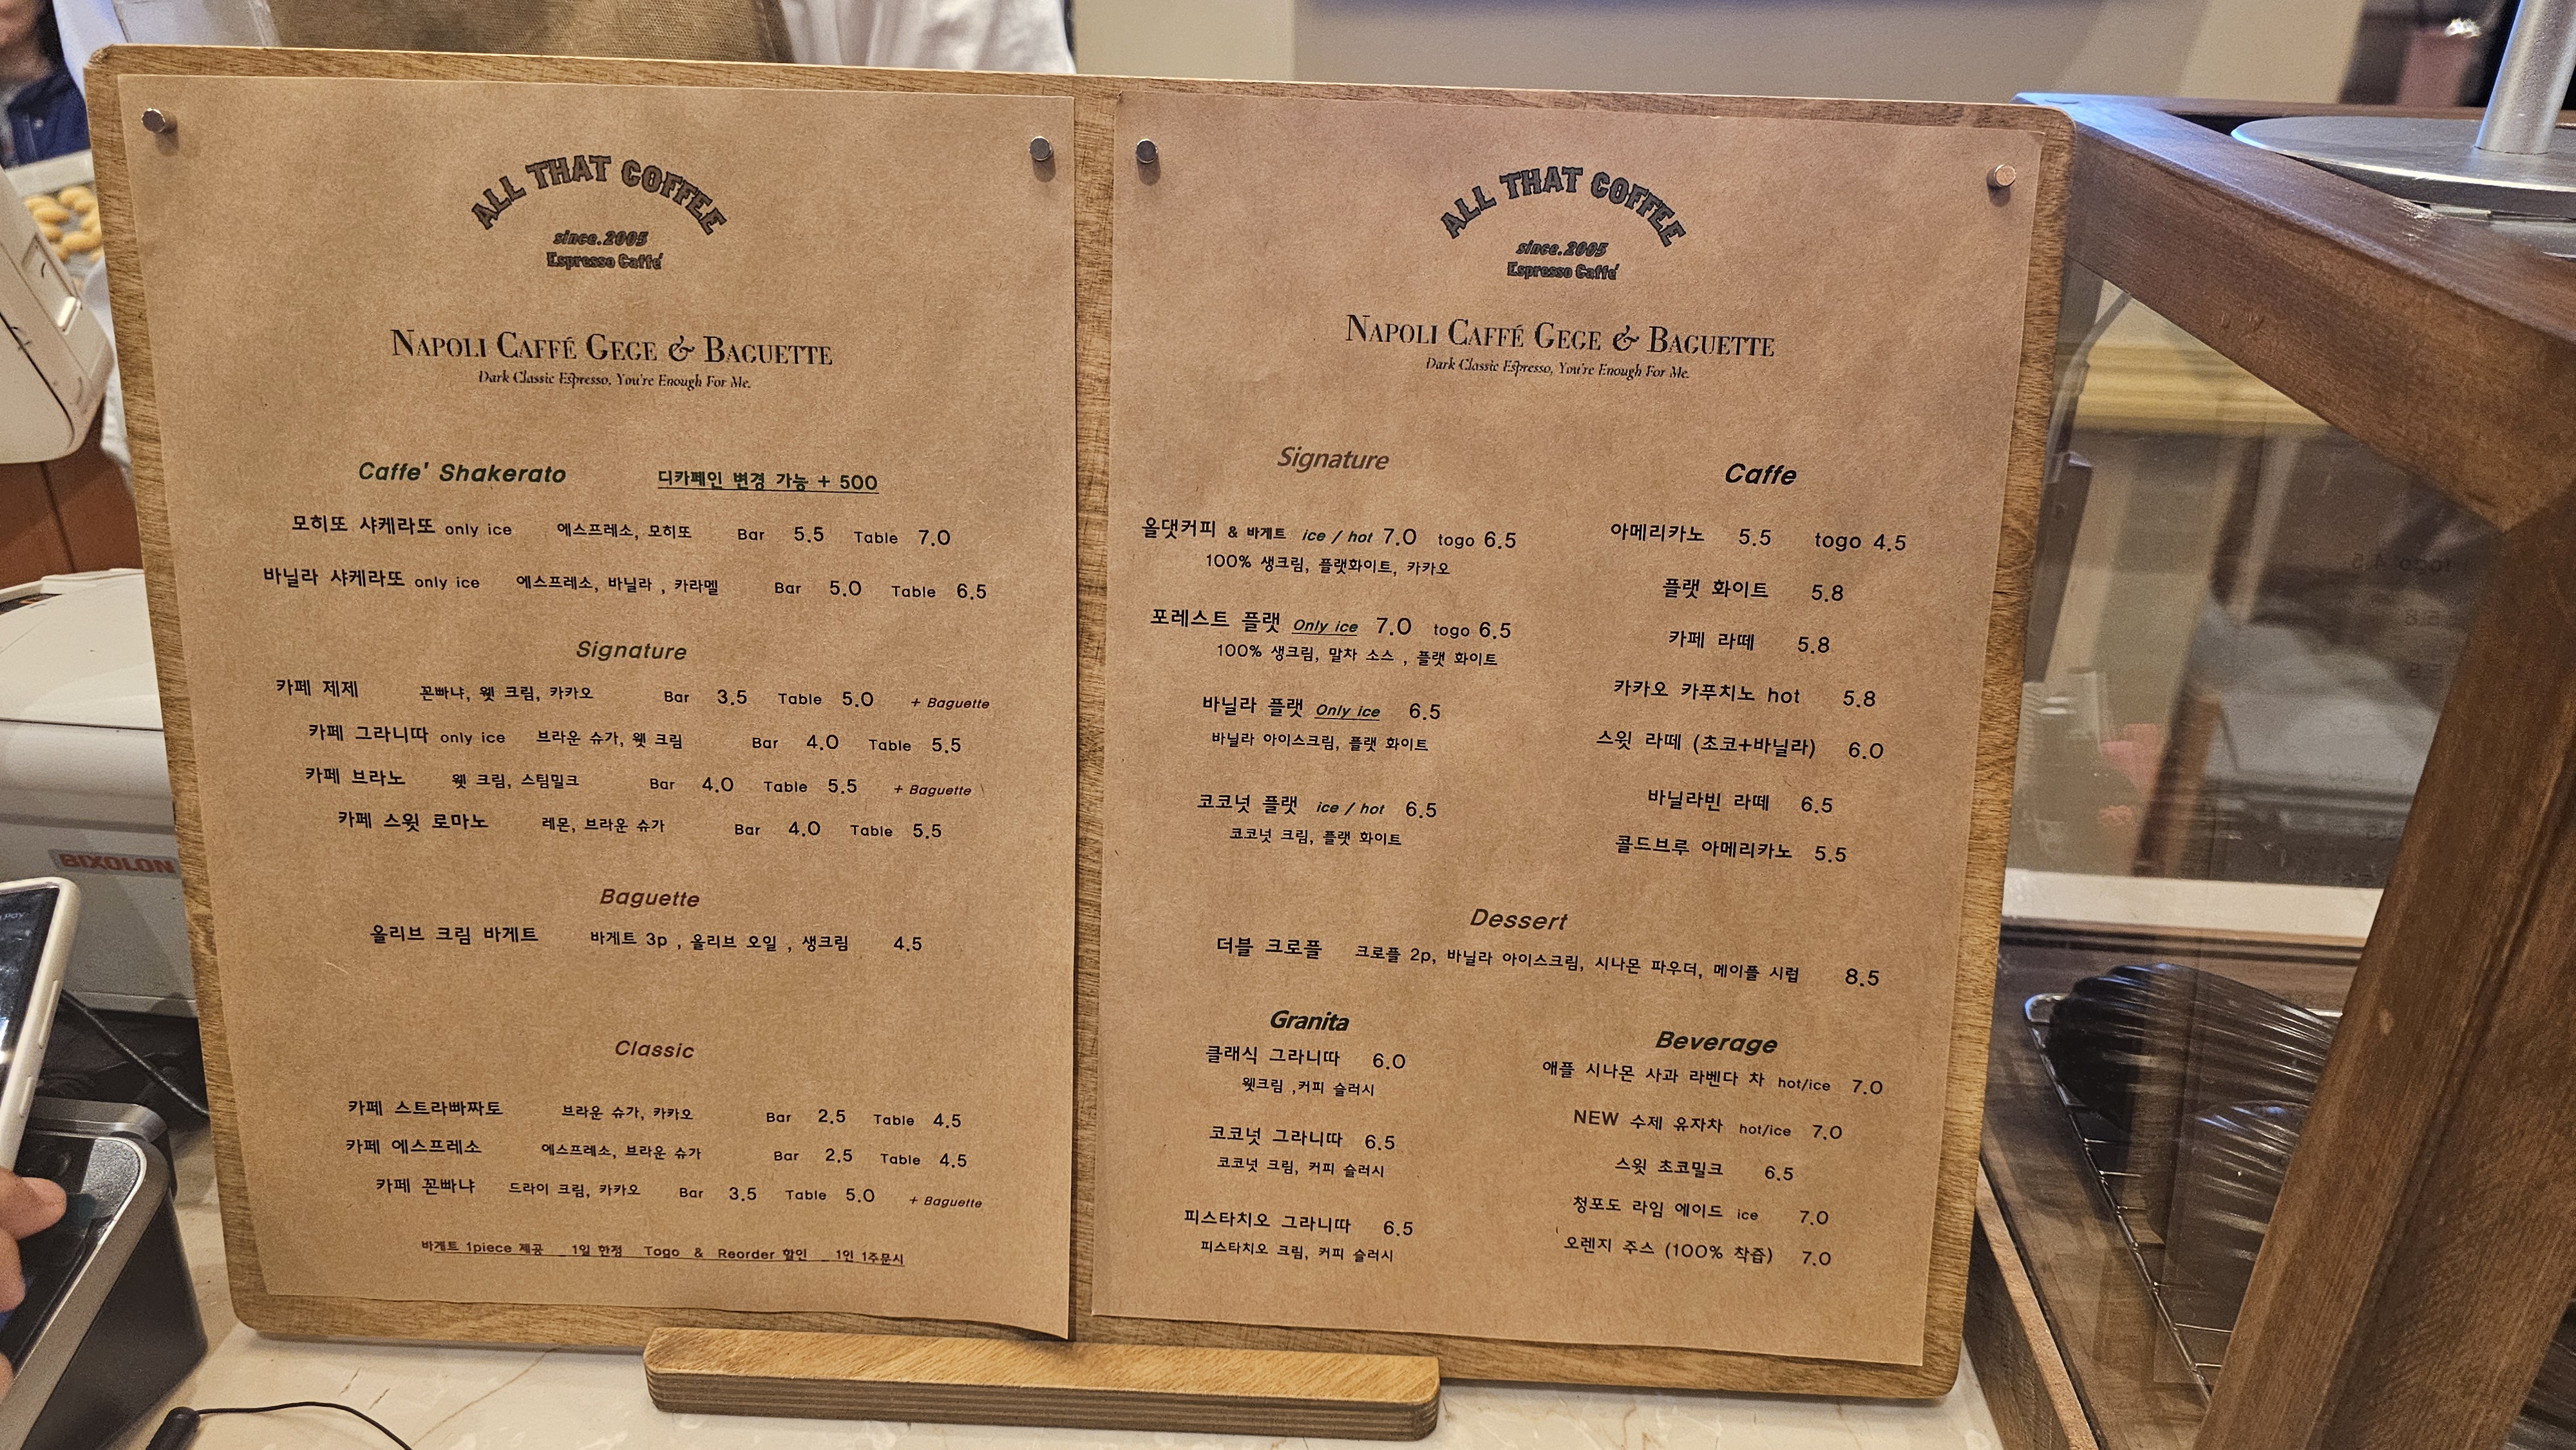 ALL THAT COFFEE
since.2005
Espresso Caffé
NAPOLI CAFFÉ GEGE & BAGUETTE
Dark Classic Espresso, You're Enough For Me.
Caffe' Shakerato 디카페인 변경 가능 + 500
모히또 샤케라또 only ice 에스프레소, 모히또 Bar 5.5 Table 7.0
바닐라 샤케라또 only ice 에스프레소, 바닐라 , 카라멜 Bar 5.0 Table 6.5
Signature
카페 제제 꼰빠냐, 웻 크림, 카카오 Bar 3.5 Table 5.0 + Baguette
카페 그라니따 only ice 브라운 슈가, 웻 크림 Bar 4.0 Table 5.5
카페 브라노 웻 크림, 스팀밀크 Bar 4.0 Table 5.5 + Baguette
카페 스윗 로마노 레몬, 브라운 슈가 Bar 4.0 Table 5.5
Baguette
올리브 크림 바게트 바게트 3p , 올리브 오일 , 생크림 4.5
Classic
카페 스트라빠짜토 브라운 슈가, 카카오 Bar 2.5 Table 4.5
카페 에스프레소 에스프레소, 브라운 슈가 Bar 2.5 Table 4.5
카페 꼰빠냐 드라이 크림, 카카오 Bar 3.5 Table 5.0 + Baguette
바게트 1piece 제공 _ 1일 한정 Togo & Reorder 할인 _ 1인 1주문시
ALL THAT COFFEE
since.2005
Espresso Caffé
NAPOLI CAFFÉ GEGE & BAGUETTE
Dark Classic Espresso, You're Enough For Me.
Signature
올댓커피 & 바게트 ice / hot 7.0 togo 6.5
100% 생크림, 플랫화이트, 카카오
포레스트 플랫 Only ice 7.0 togo 6.5
100% 생크림, 말차 소스 , 플랫 화이트
바닐라 플랫 Only ice 6.5
바닐라 아이스크림, 플랫 화이트
코코넛 플랫 ice / hot 6.5
코코넛 크림, 플랫 화이트
Caffe
아메리카노 5.5 togo 4.5
플랫 화이트 5.8
카페 라떼 5.8
카카오 카푸치노 hot 5.8
스윗 라떼 (초코+바닐라) 6.0
바닐라빈 라떼 6.5
콜드브루 아메리카노 5.5
Dessert
더블 크로플 크로플 2p, 바닐라 아이스크림, 시나몬 파우더, 메이플 시럽 8.5
Granita
클래식 그라니따 6.0
웻크림 ,커피 슬러시
코코넛 그라니따 6.5
코코넛 크림, 커피 슬러시
피스타치오 그라니따 6.5
피스타치오 크림, 커피 슬러시
Beverage
애플 시나몬 사과 라벤다 차 hot/ice 7.0
NEW 수제 유자차 hot/ice 7.0
스윗 초코밀크 6.5
청포도 라임 에이드 ice 7.0
오렌지 주스 (100% 착즙) 7.0
BIXOLON